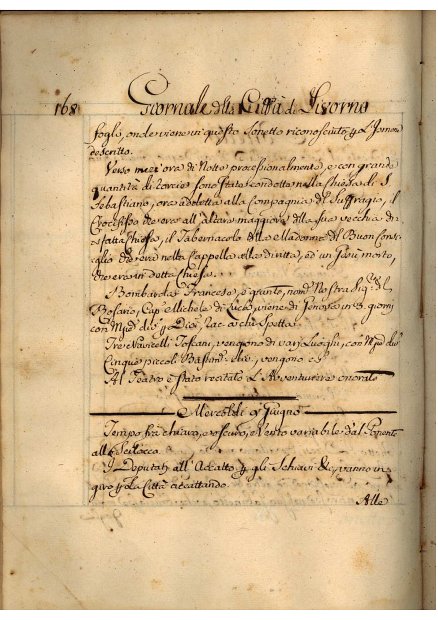 168 Giornale della Città di Livorno
foglj, onde viene in questo Sonetto riconosciuto p. L'Jomon
descritto.
Verso mezz'ora di Notte processionalmente, e con grande
quantità di torcie sono stati condotti nella Chiesa di S.
Sebastiano, ora ridotta alla Compagnia di Suffragio, il
Crocefisso che era all'altare maggiore della sua vecchia di-
sfatta Chiesa, il Tabernacolo della Madonna del Buon Consi-
glio che era nella Cappella alla diritta, ed un Jesù morto,
che era in detta Chiesa.
Bombarda Francese, è giunto, nom. Nostra Sig.ra del
Rosario, Cap. Michele di Luca, viene di Genova in 3. giorni
con a chi Spetta.
Tre Navicelli Toscani, vengono di varj Luoghi, con
Cinque piccoli Bastim. vengono
Al Teatro è stato recitato L'Avventuriere onorato
Mercoledì 9 Giugno
Tempo frà chiaro, e oscuro, e Vento variabile dal Ponente
allo Scilocco.
I Deputati all'Accatto p. gli Schiavi vanno in
giro p. la Città accattando.
Alle